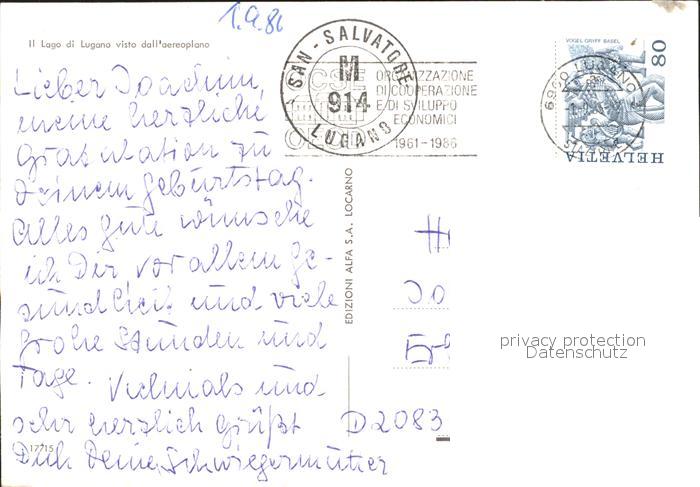 1.9.86
Il Lago di Lugano visto dall'aereoplano
Lieber Joachim,
meine herzliche
Gratulation zu
Deinem Geburtstag.
Alles gute wünsche
ich Dir vor allem Ge-
sundheit und viele
frohe Stunden und
Tage. Vielmals und
sehr herzlich grüßt
Dich Deine Schwiegermutter
17715
EDIZIONI ALFA S.A. LOCARNO
SAN-SALVATORE
M
914
LUGANO
ORGANIZZAZIONE
DI COOPERAZIONE
E DI SVILUPPO
ECONOMICI
1961-1986
VOGEL GRIFF BASEL
80
HELVETIA
6900 LUGANO
H
Jo
D 2083
privacy protection
Datenschutz